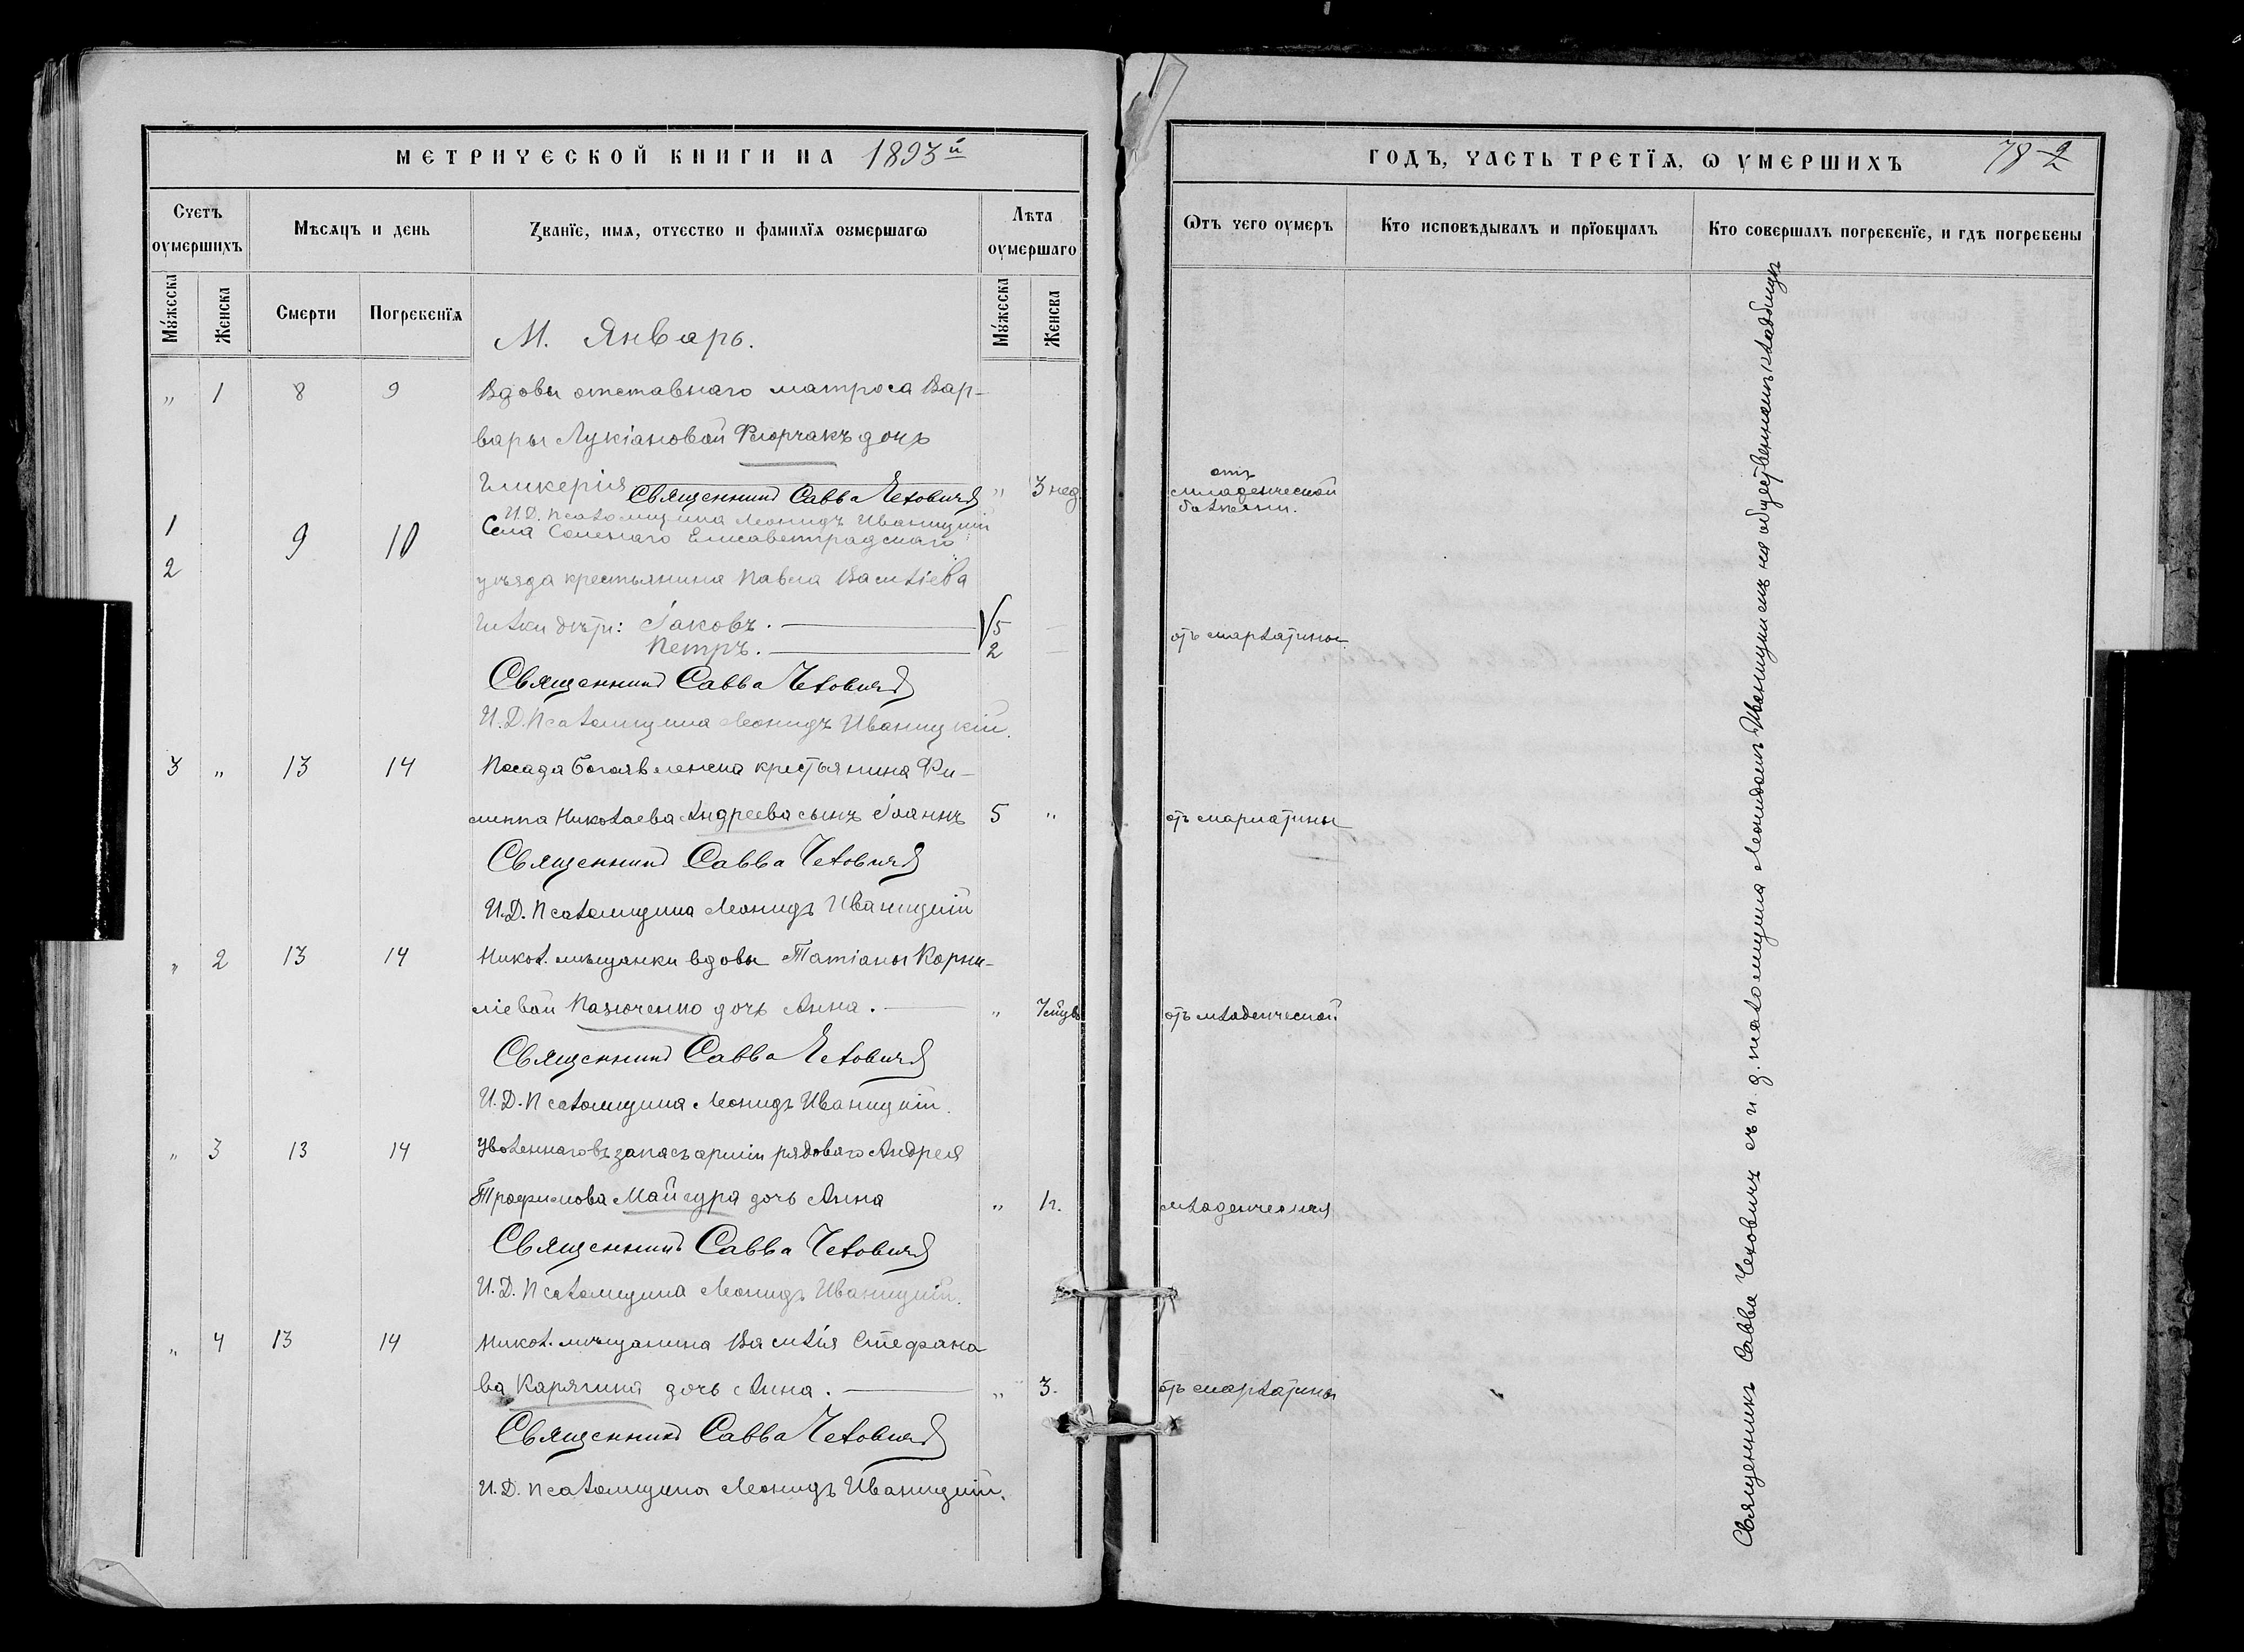 МЕТРИЧЕСКОЙ КНИГИ НА 1893й
Счетъ оумершихъ
Мѣсяцъ и день
Званїе, имя, отчество и фамилїя оумершагѡ
Лѣта оумершаго
Мужеска
Женска
Смерти
Погребенїя
Мужеска
Женска
М. Январь.
" 1 8 9 Вдовы отставнаго матроса Вар-
вары Лукіановой Флорчакъ дочь
Гликерія Священникъ Савва Чеховичъ " 3 нед.
И.Д. Псаломщика Леонидъ Иваницкій
1 9 10 Села Соленаго Елисаветградскаго
2 уѣзда крестьянина Павла Василіева
дѣти: Іаковъ. 5 —
Петръ. 2 —
Священникъ Савва Чеховичъ
И.Д. Псаломщика Леонидъ Иваницкій.
3 " 13 14 Посада Богоявленска крестьянина Фи-
липпа Николаева Андреева сынъ Іоаннъ 5 "
Священникъ Савва Чеховичъ
И.Д. Псаломщика Леонидъ Иваницкій
" 2 13 14 Никол. мѣщанки вдовы Татіаны Корни-
ліевой Пазюченко дочь Анна. "
Священникъ Савва Чеховичъ
И.Д. Псаломщика Леонидъ Иваницкій.
" 3 13 14 Уволеннаго въ запасъ арміи рядоваго Андрея
Трофимова Майсура дочь Анна "
Священникъ Савва Чеховичъ
И.Д. Псаломщика Леонидъ Иваницкій.
" 4 13 14 Никол. мѣщанина Василія Стефано
ва Карягина дочь Анна. " 3.
Священникъ Савва Чеховичъ
И.Д. Псаломщика Леонидъ Иваницкій.
ГОДЪ, ЧАСТЬ ТРЕТЇЯ, Ѡ УМЕРШИХЪ 78 2
Ѿтъ чего оумеръ
Кто исповѣдывалъ и прїобщалъ
Кто совершалъ погребенїе, и гдѣ погребены
отъ
младенческой
болѣзни.
отъ скарлатины
отъ скарлатины
отъ младенческой
младенческая
отъ скарлатины
Священникъ Савва Чеховичъ съ и. д. псаломщика Леонидомъ Иваницкимъ на общественномъ кладбищѣ